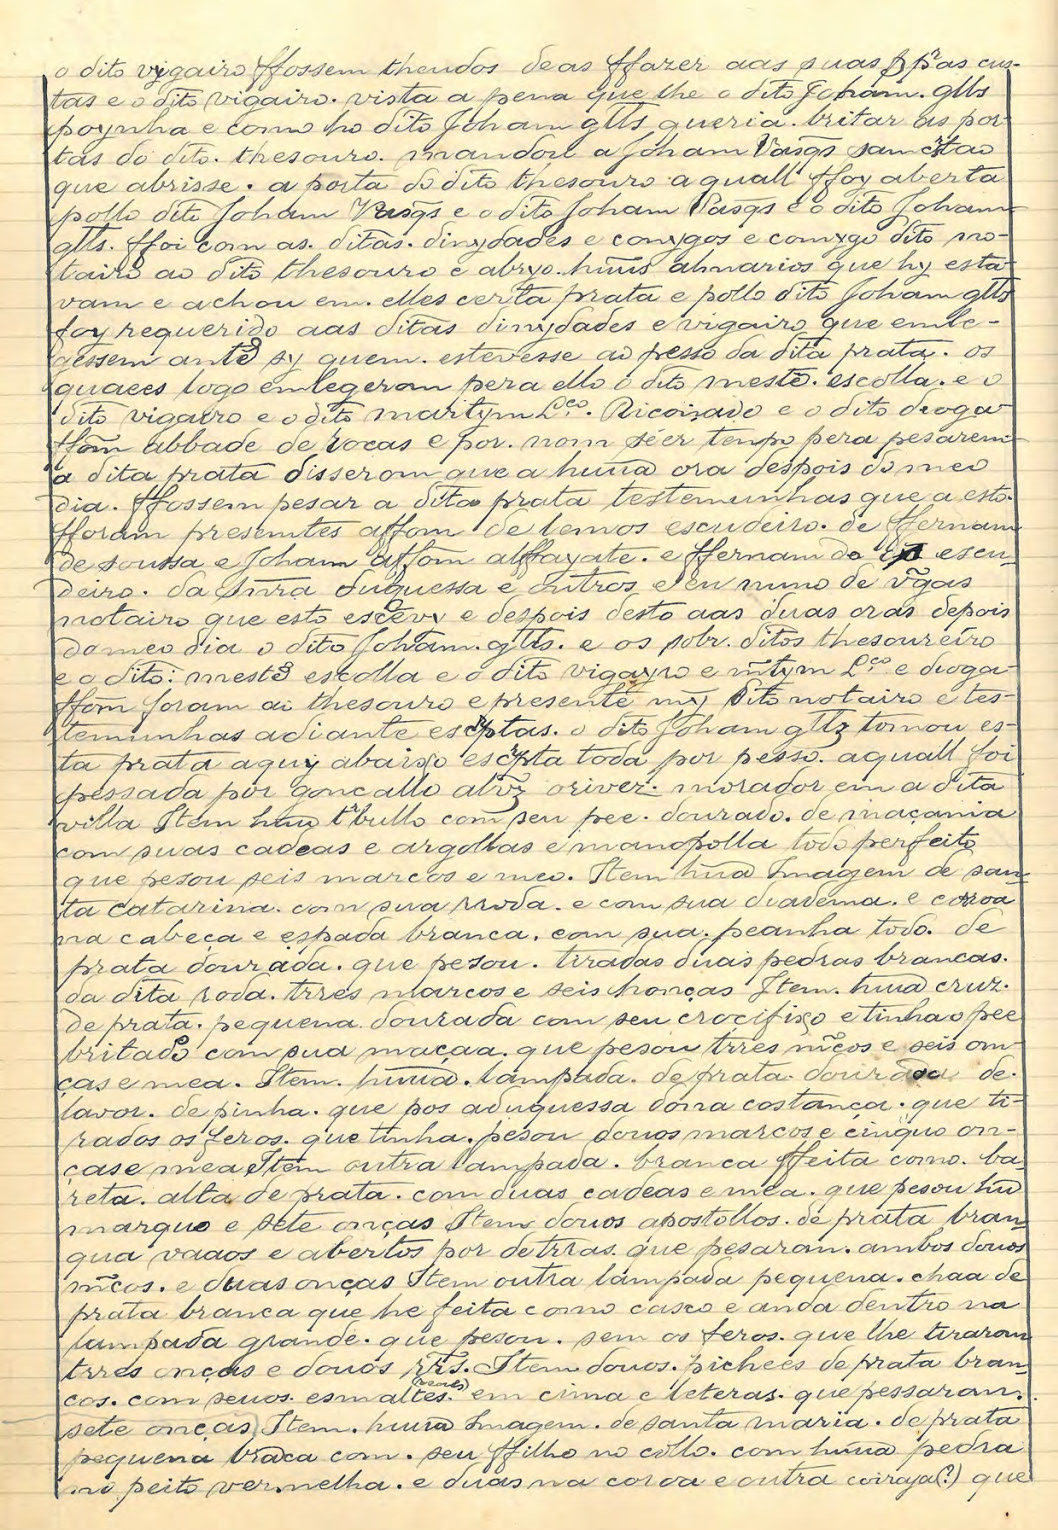 o dito vigairo ffossem theudos deas ffazer aas suas ppas cus-
tas e o dito vigairo. vista a pena que lhe o dito Joham. glls
poynha e como ho dito Joham glls queria. britar as por-
tas do dito. thesouro. mandou a Joham Vasqs samcrstao
que abrisse. a porta do dito thesouro a quall ffoy aberta
pollo dito Joham Vasqs e o dito Joham Vasqs e o dito Joham
glls. ffoi com as. ditas. dinydades e conygos e comygo dito no-
tairo ao dito thesouro e abryo. huus almarios que hy esta-
vam e achou em. elles certa prata e pollo dito Joham glls
foy requerido aas ditas dinydades e vigairo que emle-
gessem antẽ sy quem. estevesse ao pesso da dita prata. os
quaees logo emlegeram pera ello o dito mestẽ. escolla. e o
dito vigairo e o dito martym Lco. Ricoizado e o dito dioga
ffom abbade de rocas e por. nom seer tempo pera pesarem
a dita prata disserom que a huua ora despois do meo
dia. ffossem pesar a dita prata testemunhas que a esto.
fforam presemtes affom de lemos escudeiro. de ffernam
de soussa e Joham affom alffayate. e ffernam do escu-
deiro. da Snra duquessa e outros e eu nuno de vãgas
notairo que esto escevy e despois desto aas duas oras depois
do meo dia o dito Joham. glls. e os sobr. ditos thesoureiro
e o dito: mestẽ escolla e o dito vigayro e mtym Lco e dioga
ffom foram ao thesouro e presente my dito notairo e tes-
temunhas adiante escptas. o dito Joham gllz tomou es-
ta prata aquy abaixo escpta toda por pesso. a quall foi
pessada por goncallo alvz orivez. morador em a dita
villa Item huu tbullo com seu pee. dourado. de maçania
com suas cadeas e argollas e manopolla todo perfeito
que pesou seis marcos e meo. Item hua Imagem de san-
ta catarina. com sua rroda. e com sua diadema. e coroa
na cabeça e espada branca. com sua. peanha todo. de
prata dourada. que pesou. tiradas duas pedras brancas.
da dita roda. trres marcos e seis honças Item. huua cruz.
de prata. pequena dourada com seu crocifixo e tinha o pee
britado com sua maçaa. que pesou trres mcos e seis on-
ças e mea. Item. huua. lampada. de prata. dourada de.
lavor. de pinha. que pos a duquessa dona costança. que ti-
rados os feros. que tinha. pesou douos marcos e cinquo on-
ças e mea Item outra lampada. branca ffeita como. ba-
reta. alta de prata. com duas cadeas e mea. que pesou hũ
marquo e sete onças Item douos apostollos. de prata bran-
qua vaaos e abertos por detrras. que pesaram. ambos douos
mcos. e duas onças Item outra lampada pequena. chaa de
prata branca que he feita como casco e anda dentro na
lampada grande. que pesou. sem os feros. que lhe tiraram
trres onças e douos rrs. Item douos. pichees de prata bran-
cos. com seuos. esmaltes. em cima e leteras. que pessaram.
sete onças Item. huua Imagem. de santa maria. de prata
pequena braca com. seu ffilho no collo. com huua pedra
no peito vermelha. e duas na coroa e outra coiraja(?) que